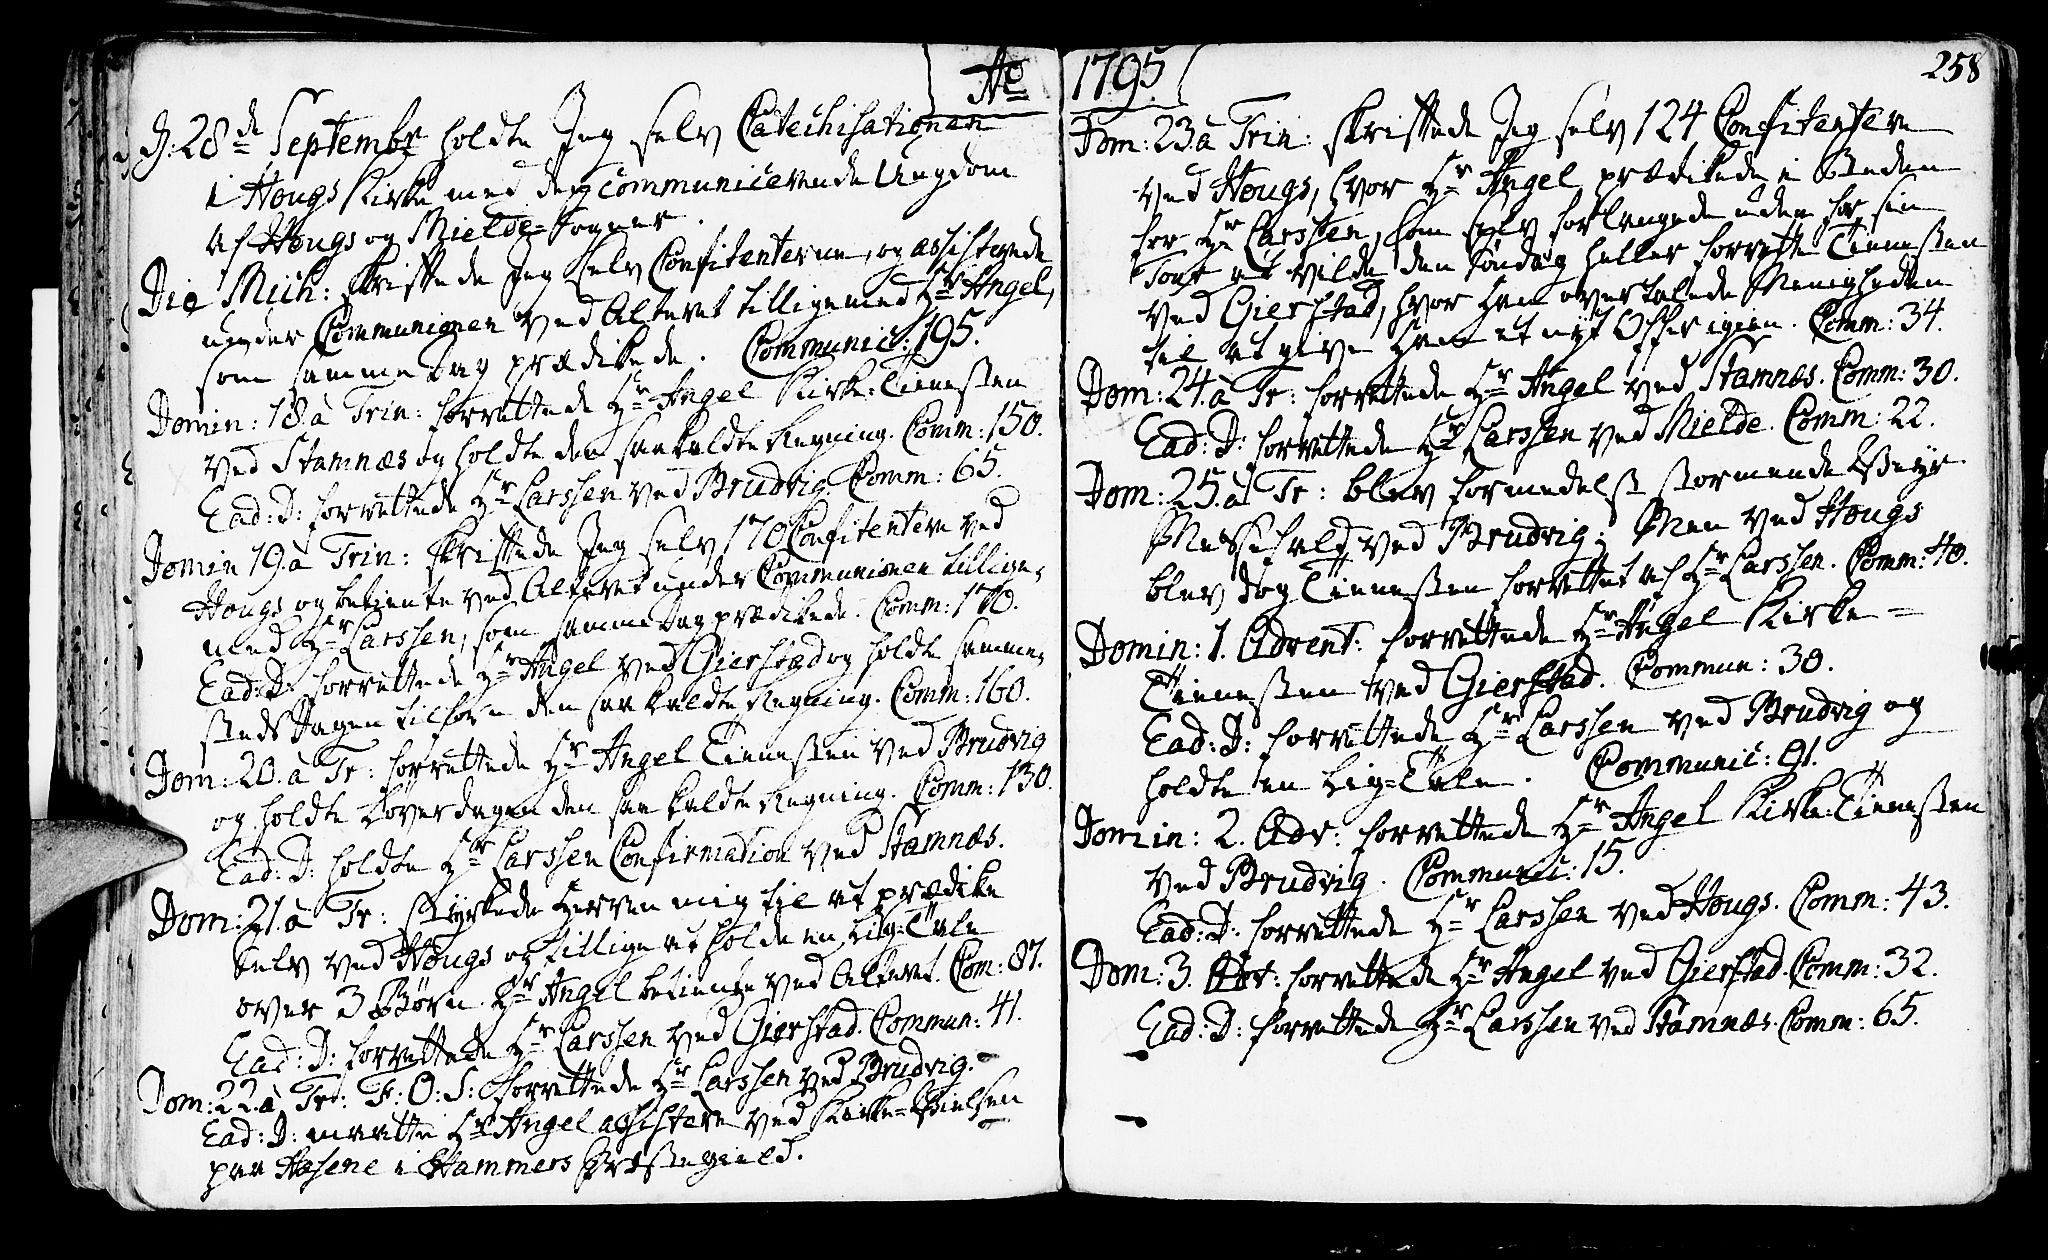 Ao 1795
258
d: 28de Septembr holdte Jeg selv Catechisationen
i Hougs Kirke med den communicerende Ungdom
af Hougs og Mielde-Sogner.
Die Mich: skriftede Jeg selv Confitenterne, og assisterede
under Communionen ved Alteret tilligemed Hr Angel,
som samme Dag prædikede. Communic: 195.
Domin: 18. à Trin: forrettede Hr Angel Kirke-Tienesten
ved Stamnæs og holdte den saakaldte Regning. Comm: 150.
Ead: D: forrettede Hr Larssen ved Brudvig. Comm: 65.
Domin 19. à Trin: skriftede Jeg selv 170 Confitentere ved
Hougs og betiente ved Alteret under Communionen tillige-
med Hr Larssen, som samme Dag prædikede. Comm: 170.
Ead: D: forrettede Hr Angel ved Gierstad og holdte samme-
steds Dagen tilforn den saa kaldte Regning. Comm: 160.
Dom: 20. à Tr: forrettede Hr Angel Tienesten ved Brudvig
og holdte Løverdagen den saa kaldte Regning. Comm: 130.
Ead: D: holdte Hr Larssen Confirmation ved Stamnæs.
Dom: 21. à Tr: styrkede Herren mig til at prædike
selv ved Hougs og tillige at holde en Lig-Tale
over 3 Børn. Hr Angel betiente ved Alteret. Com: 87.
Ead: D: forrettede Hr Larssen ved Gierstad. Commun: 41.
Dom: 22. à Tr: F: O: S: forrettede Hr Larssen ved Brudvig.
Ead: D: maatte Hr Angel assistere ved Kirke-Vielsen
paa Hasene i Hammers Præstegield.
Dom: 23. à Trin: skriftede Jeg selv 124 Confitentere
ved Hougs, hvor Hr Angel prædikede i Steden
for Hr Larssen, som selv forlangede uden for sin
Tour at vilde den Søndag heller forrette Tienesten
ved Gierstad, hvor han overtalede Menigheden
til at give ham et nyt Offer igien. Comm: 34.
Dom: 24. à Tr: forrettede Hr Angel ved Stamnæs. Comm: 30.
Ead: D: forrettede Hr Larssen ved Mielde. Comm: 22.
Dom: 25. à Tr: blev formedelst stormende Veyr
Messefald ved Brudvig; Men ved Hougs
blev dog Tienesten forrettet af Hr Larssen. Comm: 40.
Domin: 1. Advent: forrettede Hr Angel Kirke-
Tienesten ved Gierstad. Commun: 30.
Ead: D: forrettede Hr Larssen ved Brudvig og
holdte en Lig-Tale. Communic: 91.
Domin: 2. Adv: forrettede Hr Angel Kirke-Tienesten
ved Brudvig. Communic: 15.
Ead: D: forrettede Hr Larssen ved Hougs. Comm: 43.
Dom: 3. Adv: forrettede Hr Angel ved Gierstad. Comm: 32.
Ead: D: forrettede Hr Larssen ved Stamnæs. Comm: 65.